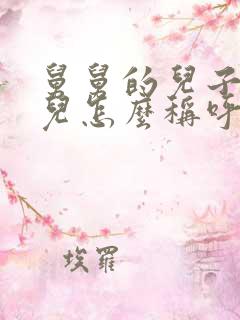 舅舅的兒子
兒怎麼稱呼
埃羅